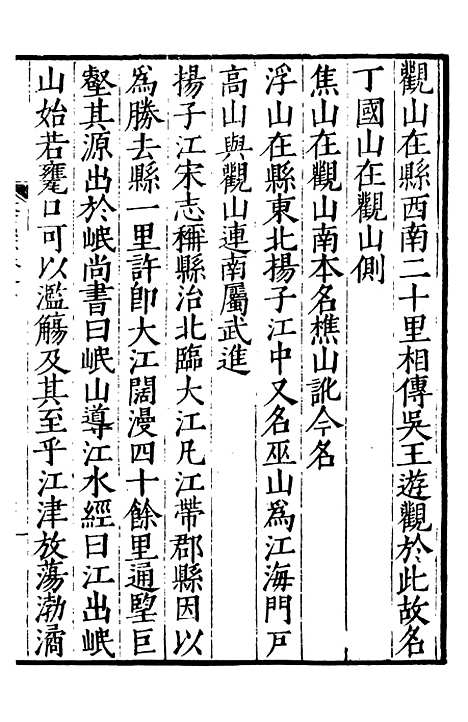 觀山在縣西南二十里相傳吳王遊觀於此故名
丁國山在觀山側
焦山在觀山南本名樵山訛今名
浮山在縣東北揚子江中又名巫山為江海門戸
高山與觀山連南屬武進
揚子江宋志稱縣治北臨大江凡江帶郡縣因以
為勝去縣一里許即大江闊漫四十餘里通壂巨
壑其源出於岷尚書曰岷山導江水經曰江出岷
山始若甕口可以濫觴及其至乎江津放蕩渤潏